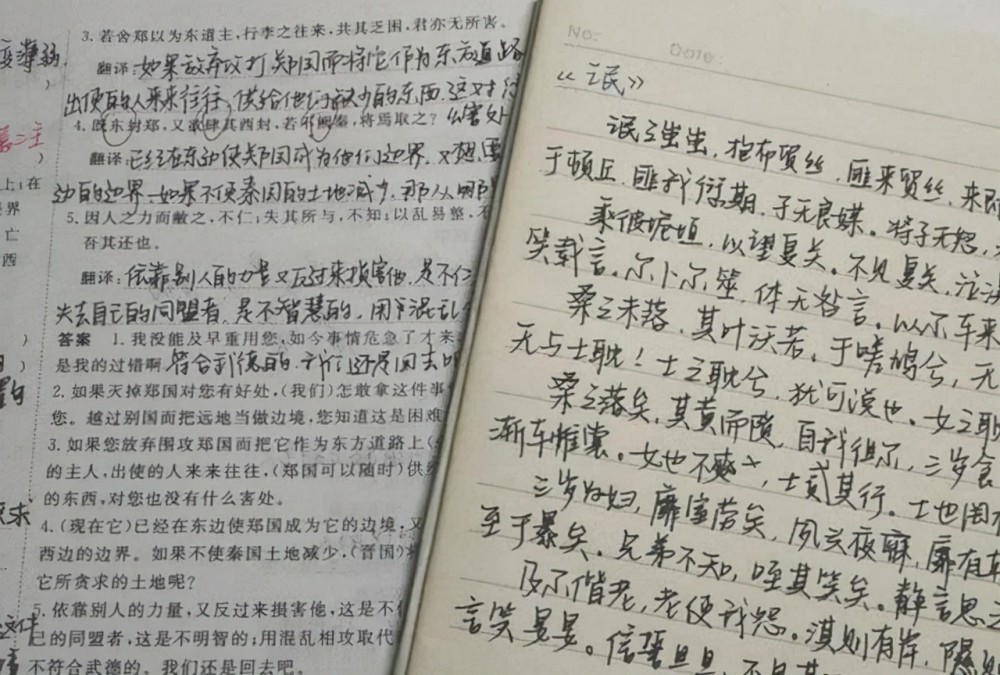 3. 若舍郑以为东道主,行李之往来,共其乏困,君亦无所害。
翻译:如果放弃攻打郑国而将它作为东方道路
出使的人来来往往,供给他们缺少的东西.这对
4. 既东封郑,又欲肆其西封,若不阙秦,将焉取之?
翻译:已经在东边使郑国成为他们边界.又想要
边的边界.如果不使秦国的土地减少,那从哪
5. 因人之力而敝之,不仁;失其所与,不知;以乱易整,不
吾其还也。
翻译:依靠别人的力量又反过来损害他,是不仁
失去自己的同盟者,是不智慧的,用混乱
答案 1. 我没能及早重用您,如今事情危急了才来
是我的过错啊 符合武德的.我们还是回去吧
2. 如果灭掉郑国对您有好处,(我们)怎敢拿这件事
您。越过别国而把远地当做边境,您知道这是困难
3. 如果您放弃围攻郑国而把它作为东方道路上(
的主人,出使的人来来往往,(郑国可以随时)供给
的东西,对您也没有什么害处。
4. (现在它)已经在东边使郑国成为它的边境,又
西边的边界。如果不使秦国土地减少,(晋国)
它所贪求的土地呢?
5. 依靠别人的力量,又反过来损害他,这是不
己的同盟者,这是不明智的;用混乱相攻取代
不符合武德的。我们还是回去吧。
No:
Date:
《氓》
氓之蚩蚩,抱布贸丝,匪来贸丝,来即
于顿丘.匪我愆期,子无良媒。将子无怒,
乘彼垝垣,以望复关。不见复关,泣涕
笑载言。尔卜尔筮,体无咎言。以尔车来
桑之未落,其叶沃若。于嗟鸠兮,无
无与士耽!士之耽兮,犹可说也。女之耽
桑之落矣,其黄而陨,自我徂尔,三岁食
渐车帷裳。女也不爽,士贰其行。士也罔
三岁为妇,靡室劳矣,夙兴夜寐,靡有
至于暴矣。兄弟不知,咥其笑矣。静言思之
及尔偕老,老使我怨。淇则有岸,隰则
言笑晏晏。信誓旦旦,不思其